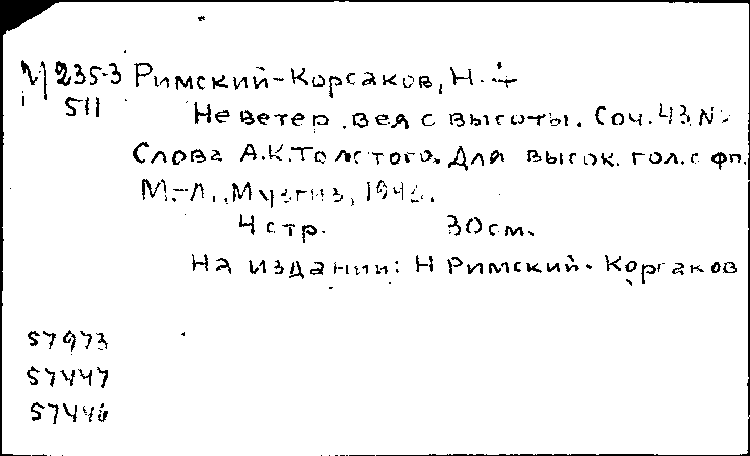 М 235-3 Римский-Корсаков, Н.
511
Не ветер, вея с высоты. Соч. 43 №
Слова А.К.Толстого. Для высок. гол. с фп.
М.-Л., Музгиз,
4 стр. 30 см.
На издании: Н Римский-Корсаков
57973
57447
57446